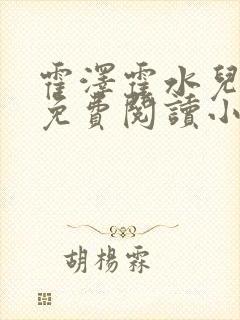 霍澤霍水兒
免費閱讀小
胡楊霖